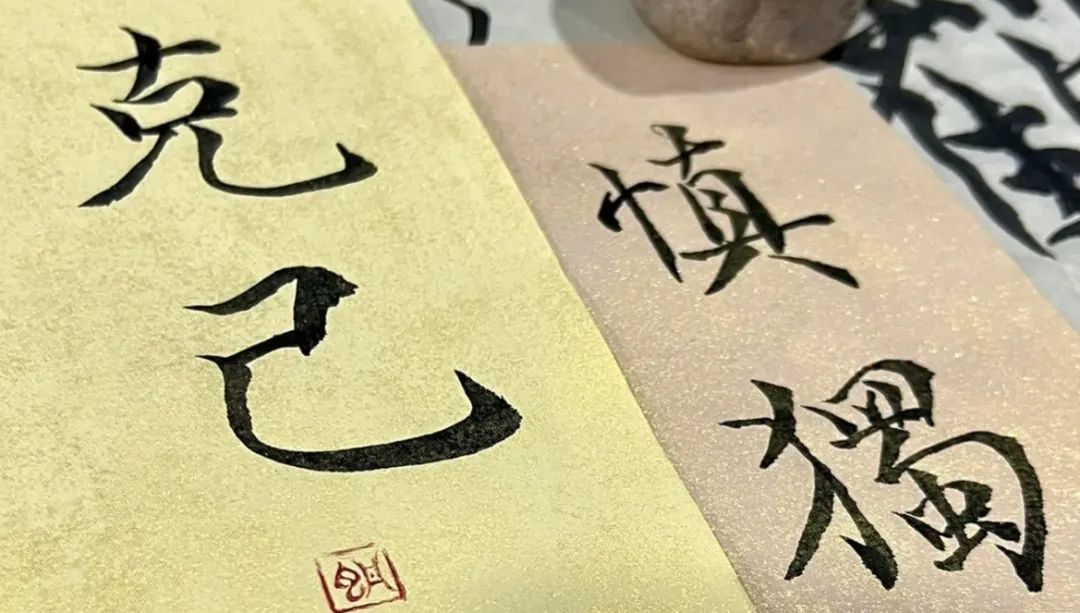 克己
慎獨